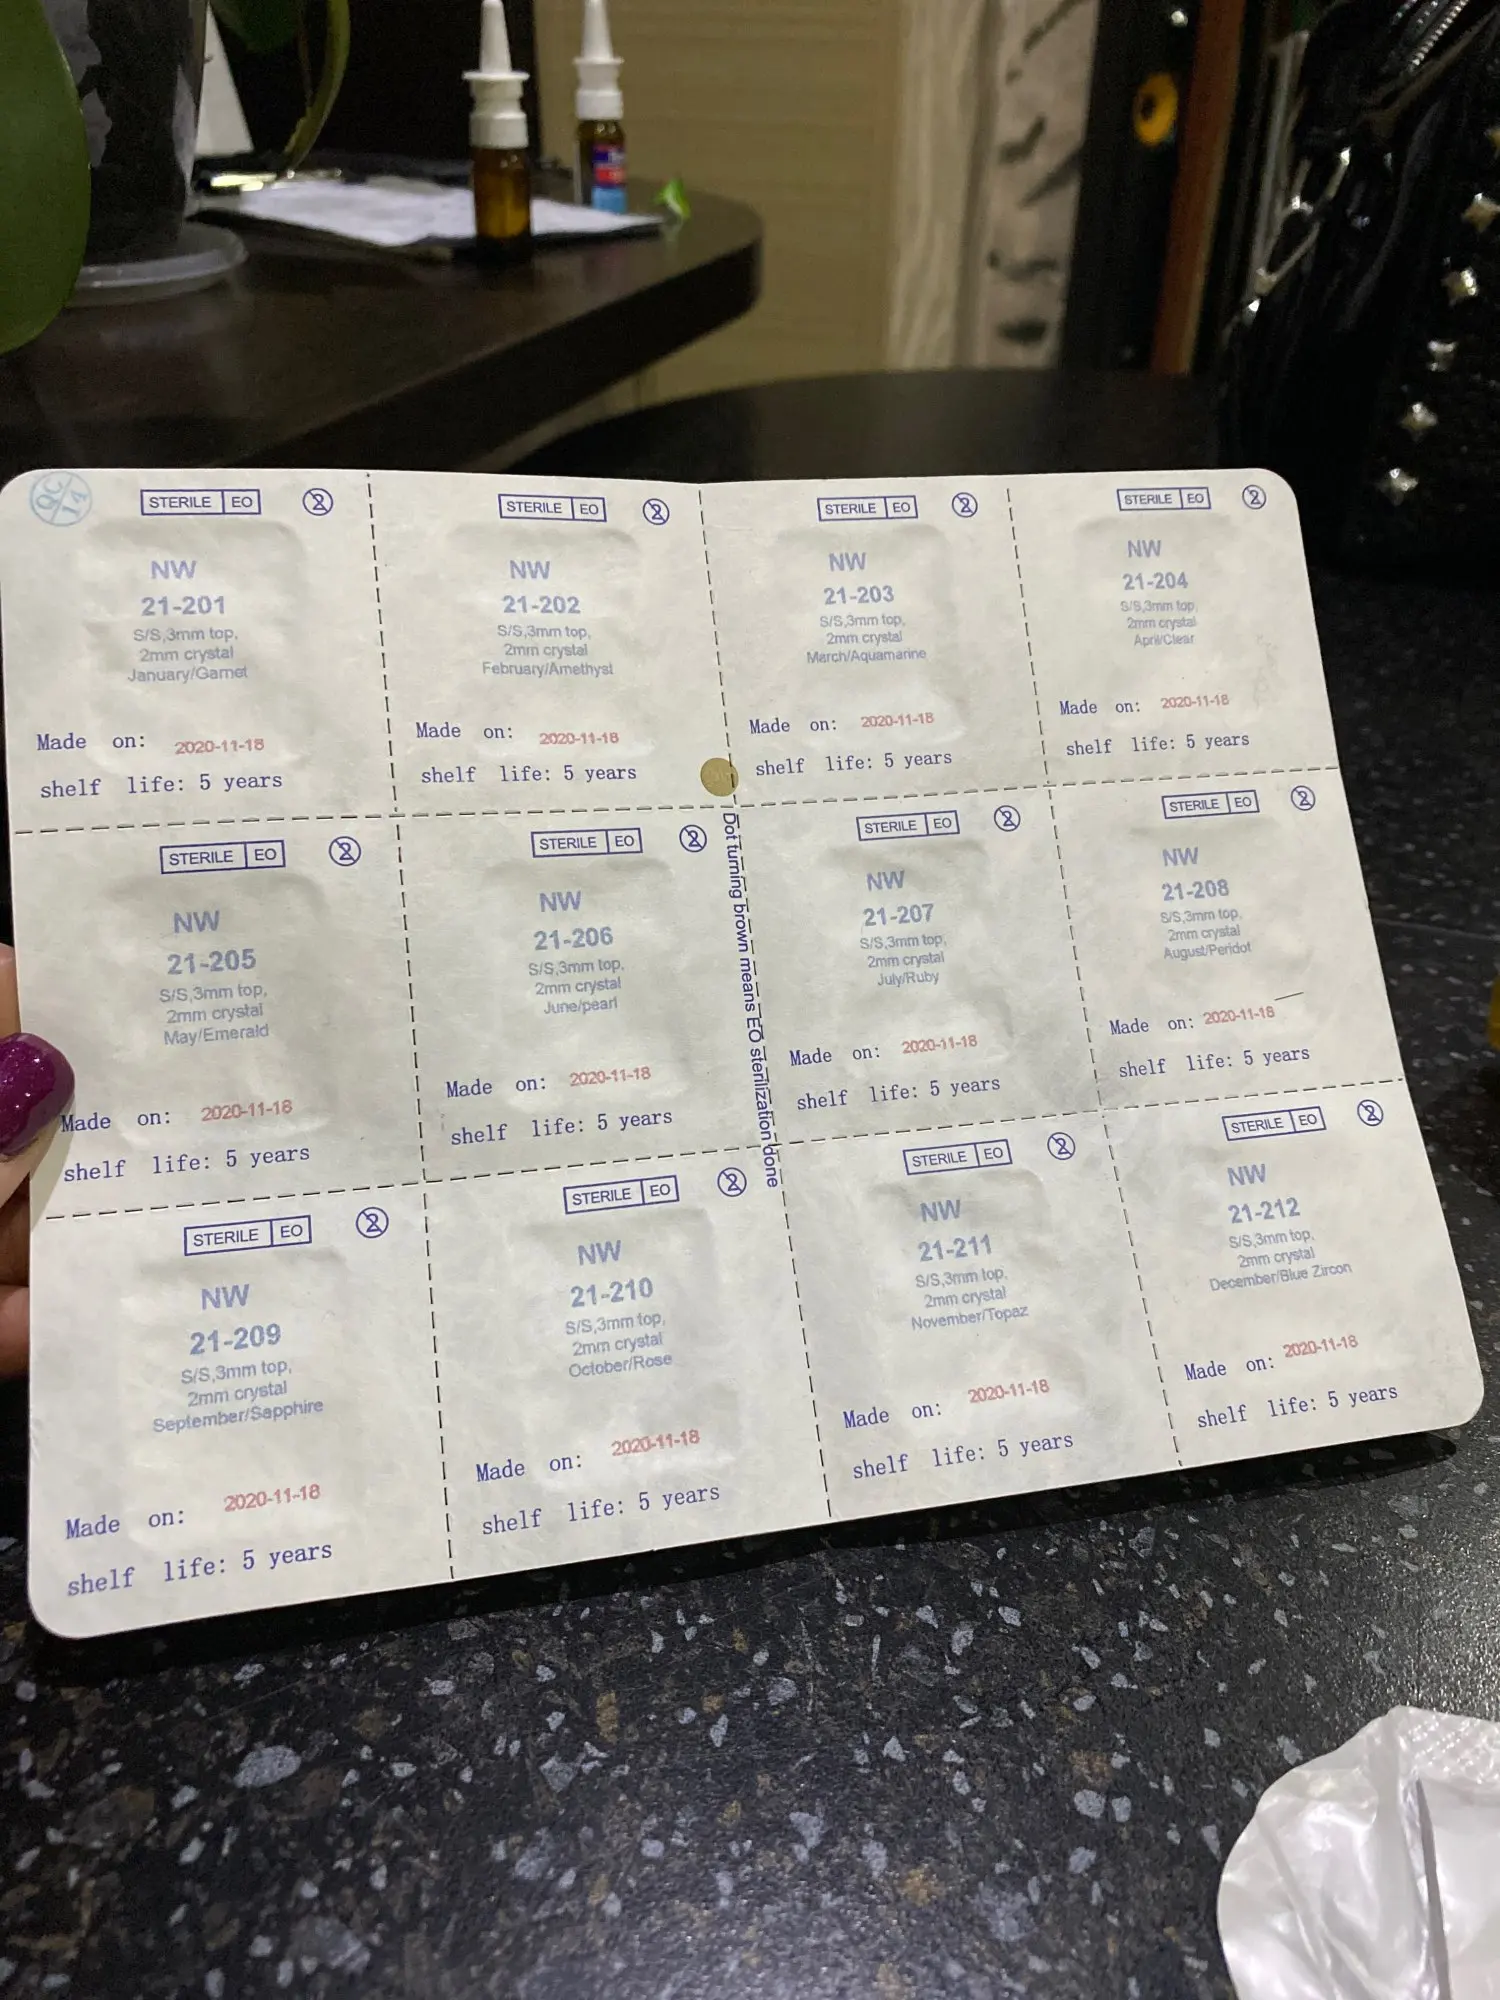 QC
14
STERILE EO
NW
21-201
S/S,3mm top,
2mm crystal
January/Garnet
Made on: 2020-11-18
shelf life: 5 years
STERILE EO
NW
21-202
S/S,3mm top,
2mm crystal
February/Amethyst
Made on: 2020-11-18
shelf life: 5 years
STERILE EO
NW
21-203
S/S,3mm top,
2mm crystal
March/Aquamarine
Made on: 2020-11-18
shelf life: 5 years
STERILE EO
NW
21-204
S/S,3mm top,
2mm crystal
April/Clear
Made on: 2020-11-18
shelf life: 5 years
STERILE EO
NW
21-205
S/S,3mm top,
2mm crystal
May/Emerald
Made on: 2020-11-18
shelf life: 5 years
STERILE EO
NW
21-206
S/S,3mm top,
2mm crystal
June/pearl
Made on: 2020-11-18
shelf life: 5 years
Dot turning brown means EO sterilization done
STERILE EO
NW
21-207
S/S,3mm top,
2mm crystal
July/Ruby
Made on: 2020-11-18
shelf life: 5 years
STERILE EO
NW
21-208
S/S,3mm top,
2mm crystal
August/Peridot
Made on: 2020-11-18
shelf life: 5 years
STERILE EO
NW
21-209
S/S,3mm top,
2mm crystal
September/Sapphire
Made on: 2020-11-18
shelf life: 5 years
STERILE EO
NW
21-210
S/S,3mm top,
2mm crystal
October/Rose
Made on: 2020-11-18
shelf life: 5 years
STERILE EO
NW
21-211
S/S,3mm top,
2mm crystal
November/Topaz
Made on: 2020-11-18
shelf life: 5 years
STERILE EO
NW
21-212
S/S,3mm top,
2mm crystal
December/Blue Zircon
Made on: 2020-11-18
shelf life: 5 years